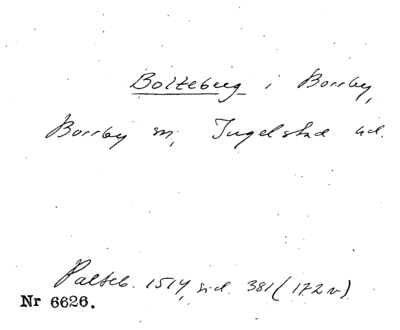 Bolteberg i Borrby,
Borrby sn, Ingelstad hd.
Palteb. 1514, sid. 381 (172 v)
Nr 6626.